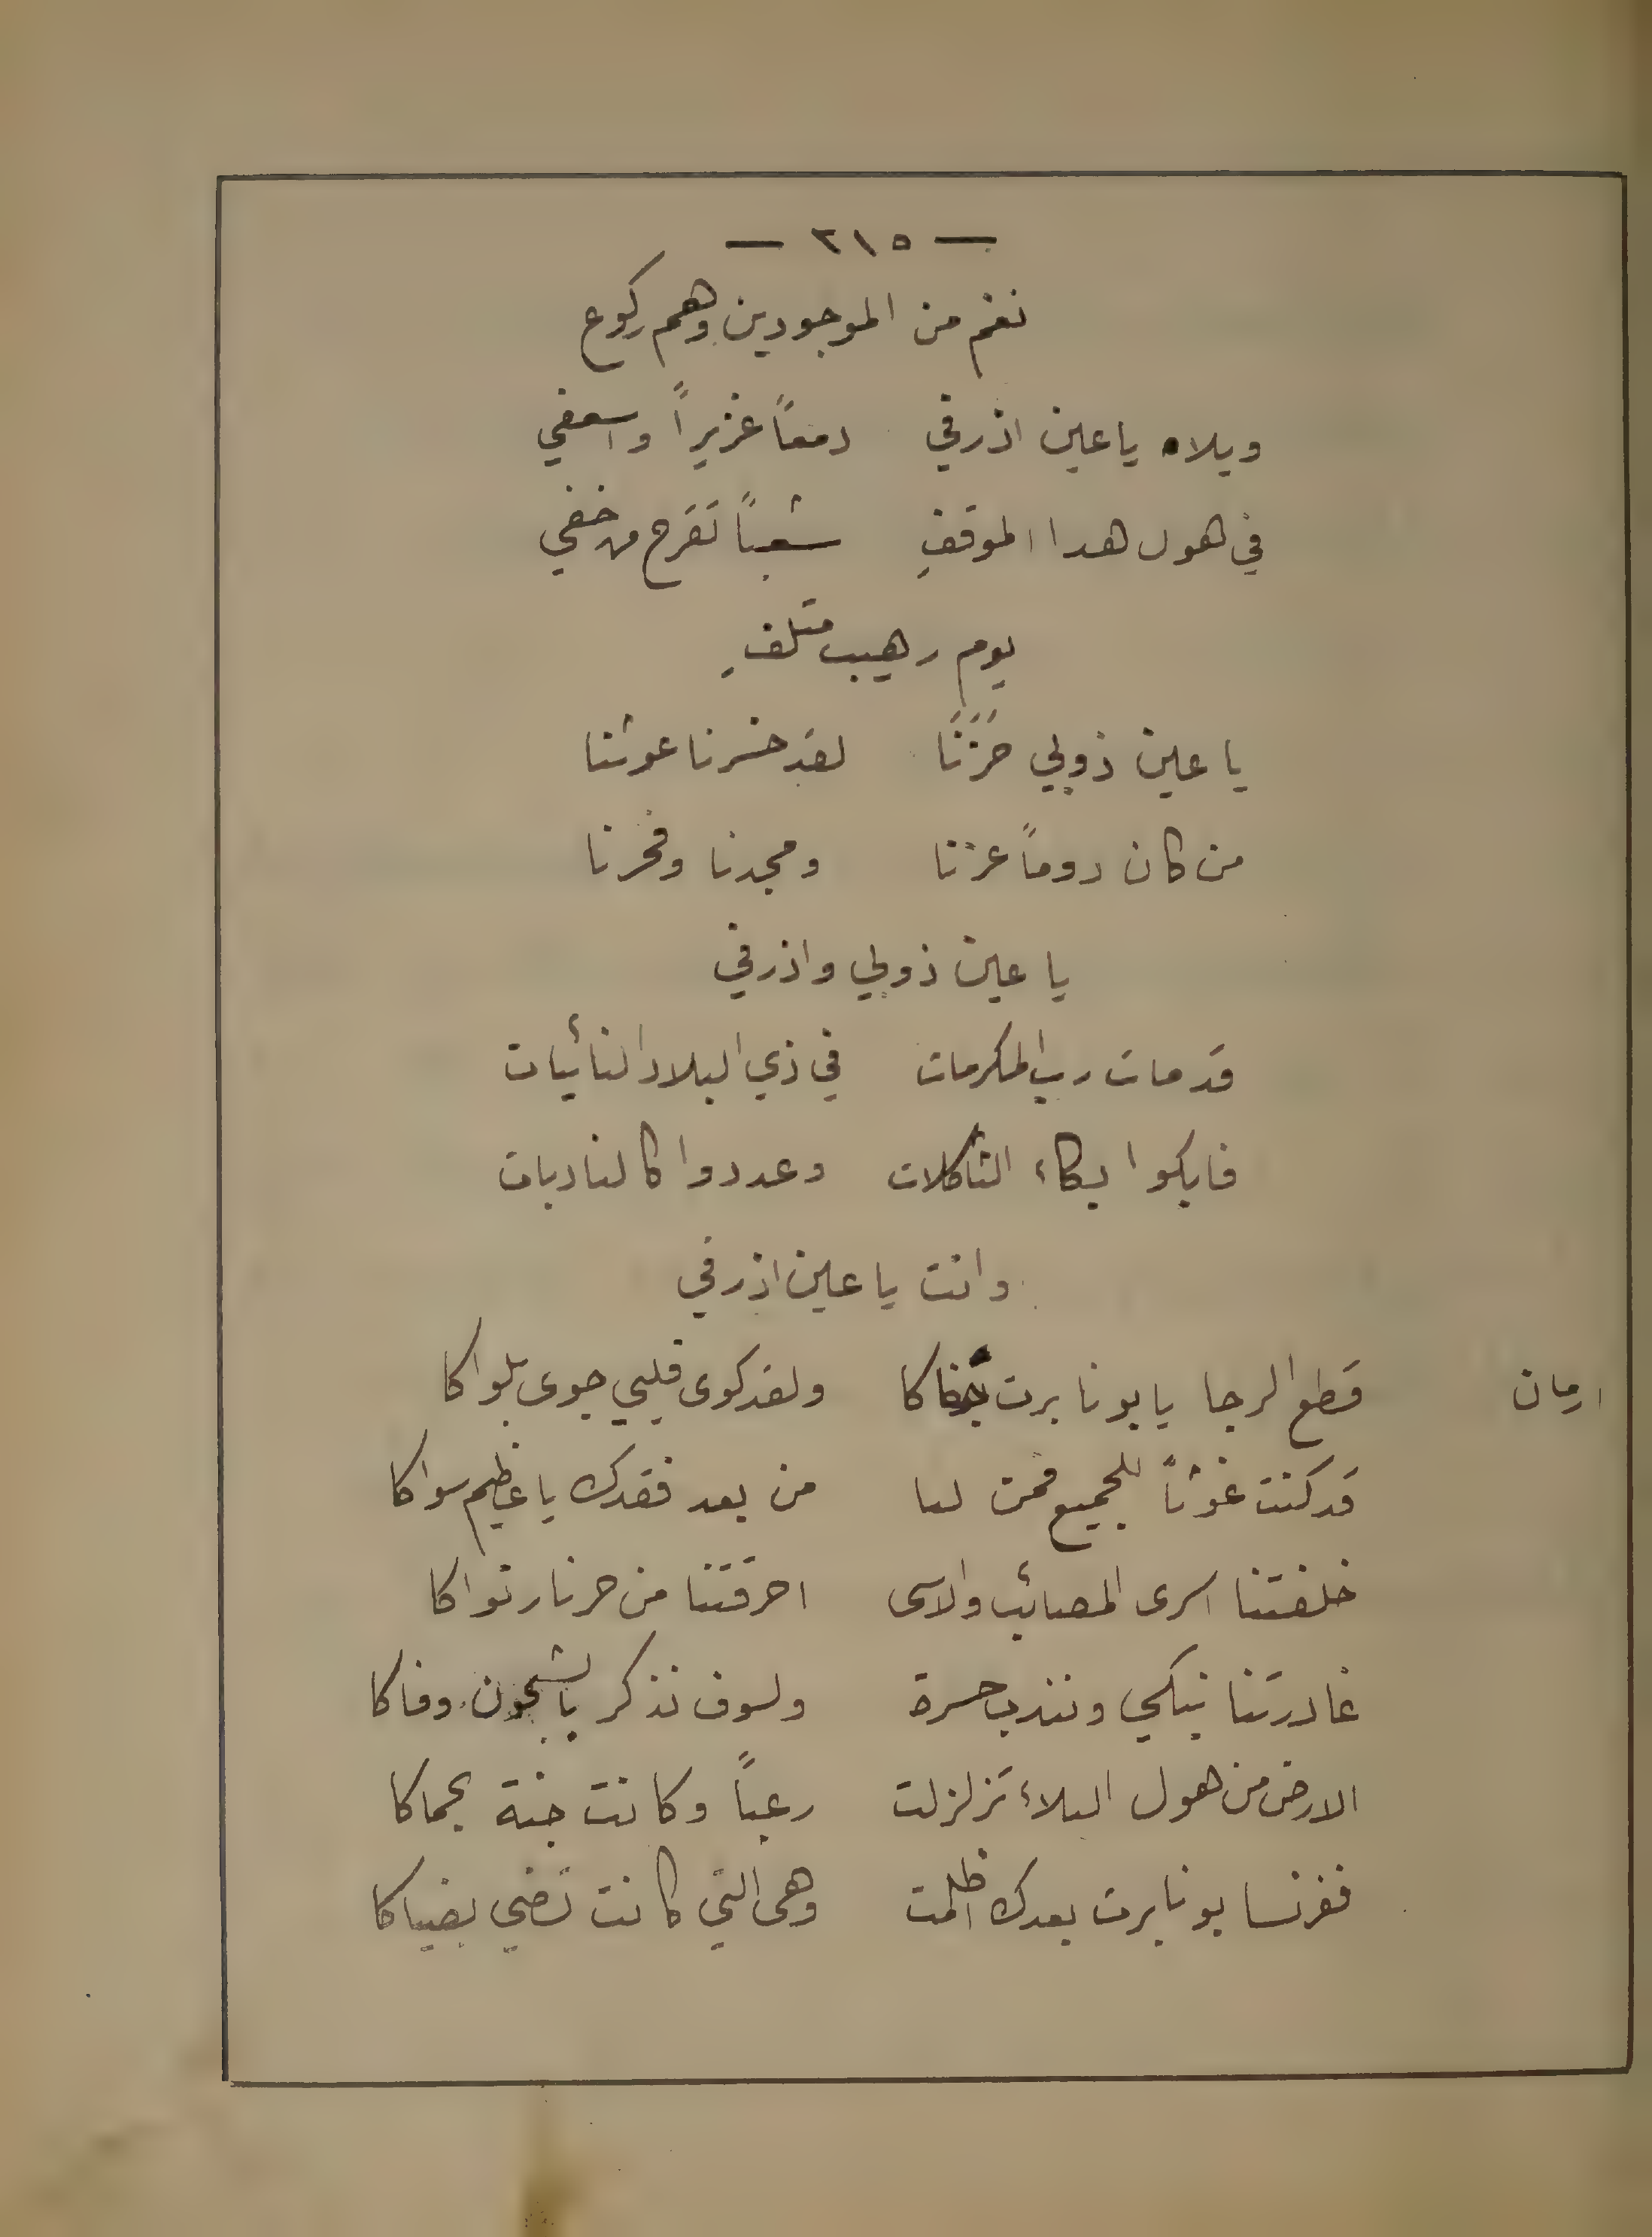 — ٢١٥ —
نغم من الموجودين وهم ركوع
ويلاه يا عين اذرفي دمعاً غزيراً واسعفي
في هول هدا الموقفِ شعباً تقرح من خفي
يوم رهيب متلفِ
يا عين ذوبي حَزَنَا لقد خسرنا غوثنا
من كان دوماً عزنا ومجدنا وفخرنا
يا عين ذوبي واذرفي
قد مات رب المكرمات في ذي البلاد النائيات
فابكوا بكاء الثاكلات وعددوا كالنادبات
وانت يا عين اذرفي
ارمان قطع الرجا يا بونابرت كا ولقد كوى قلبي جوى بلواكا
قد كنت غوثاً للجميع فمن لنا من بعد فقدك يا عظيم سواكا
خلفتنا اسرى المصائب والاسى احرقتنا من حر نار نواكا
غادرتنا نبكي ونندب حسرة ولسوف نذكر بالشجون وفاكا
الارض من هول البلاء تزلزلت رعباً وكانت جنة بحماكا
ففرنسا بونابرت بعدك اظلمت وهي التي كانت تضي بضياكا